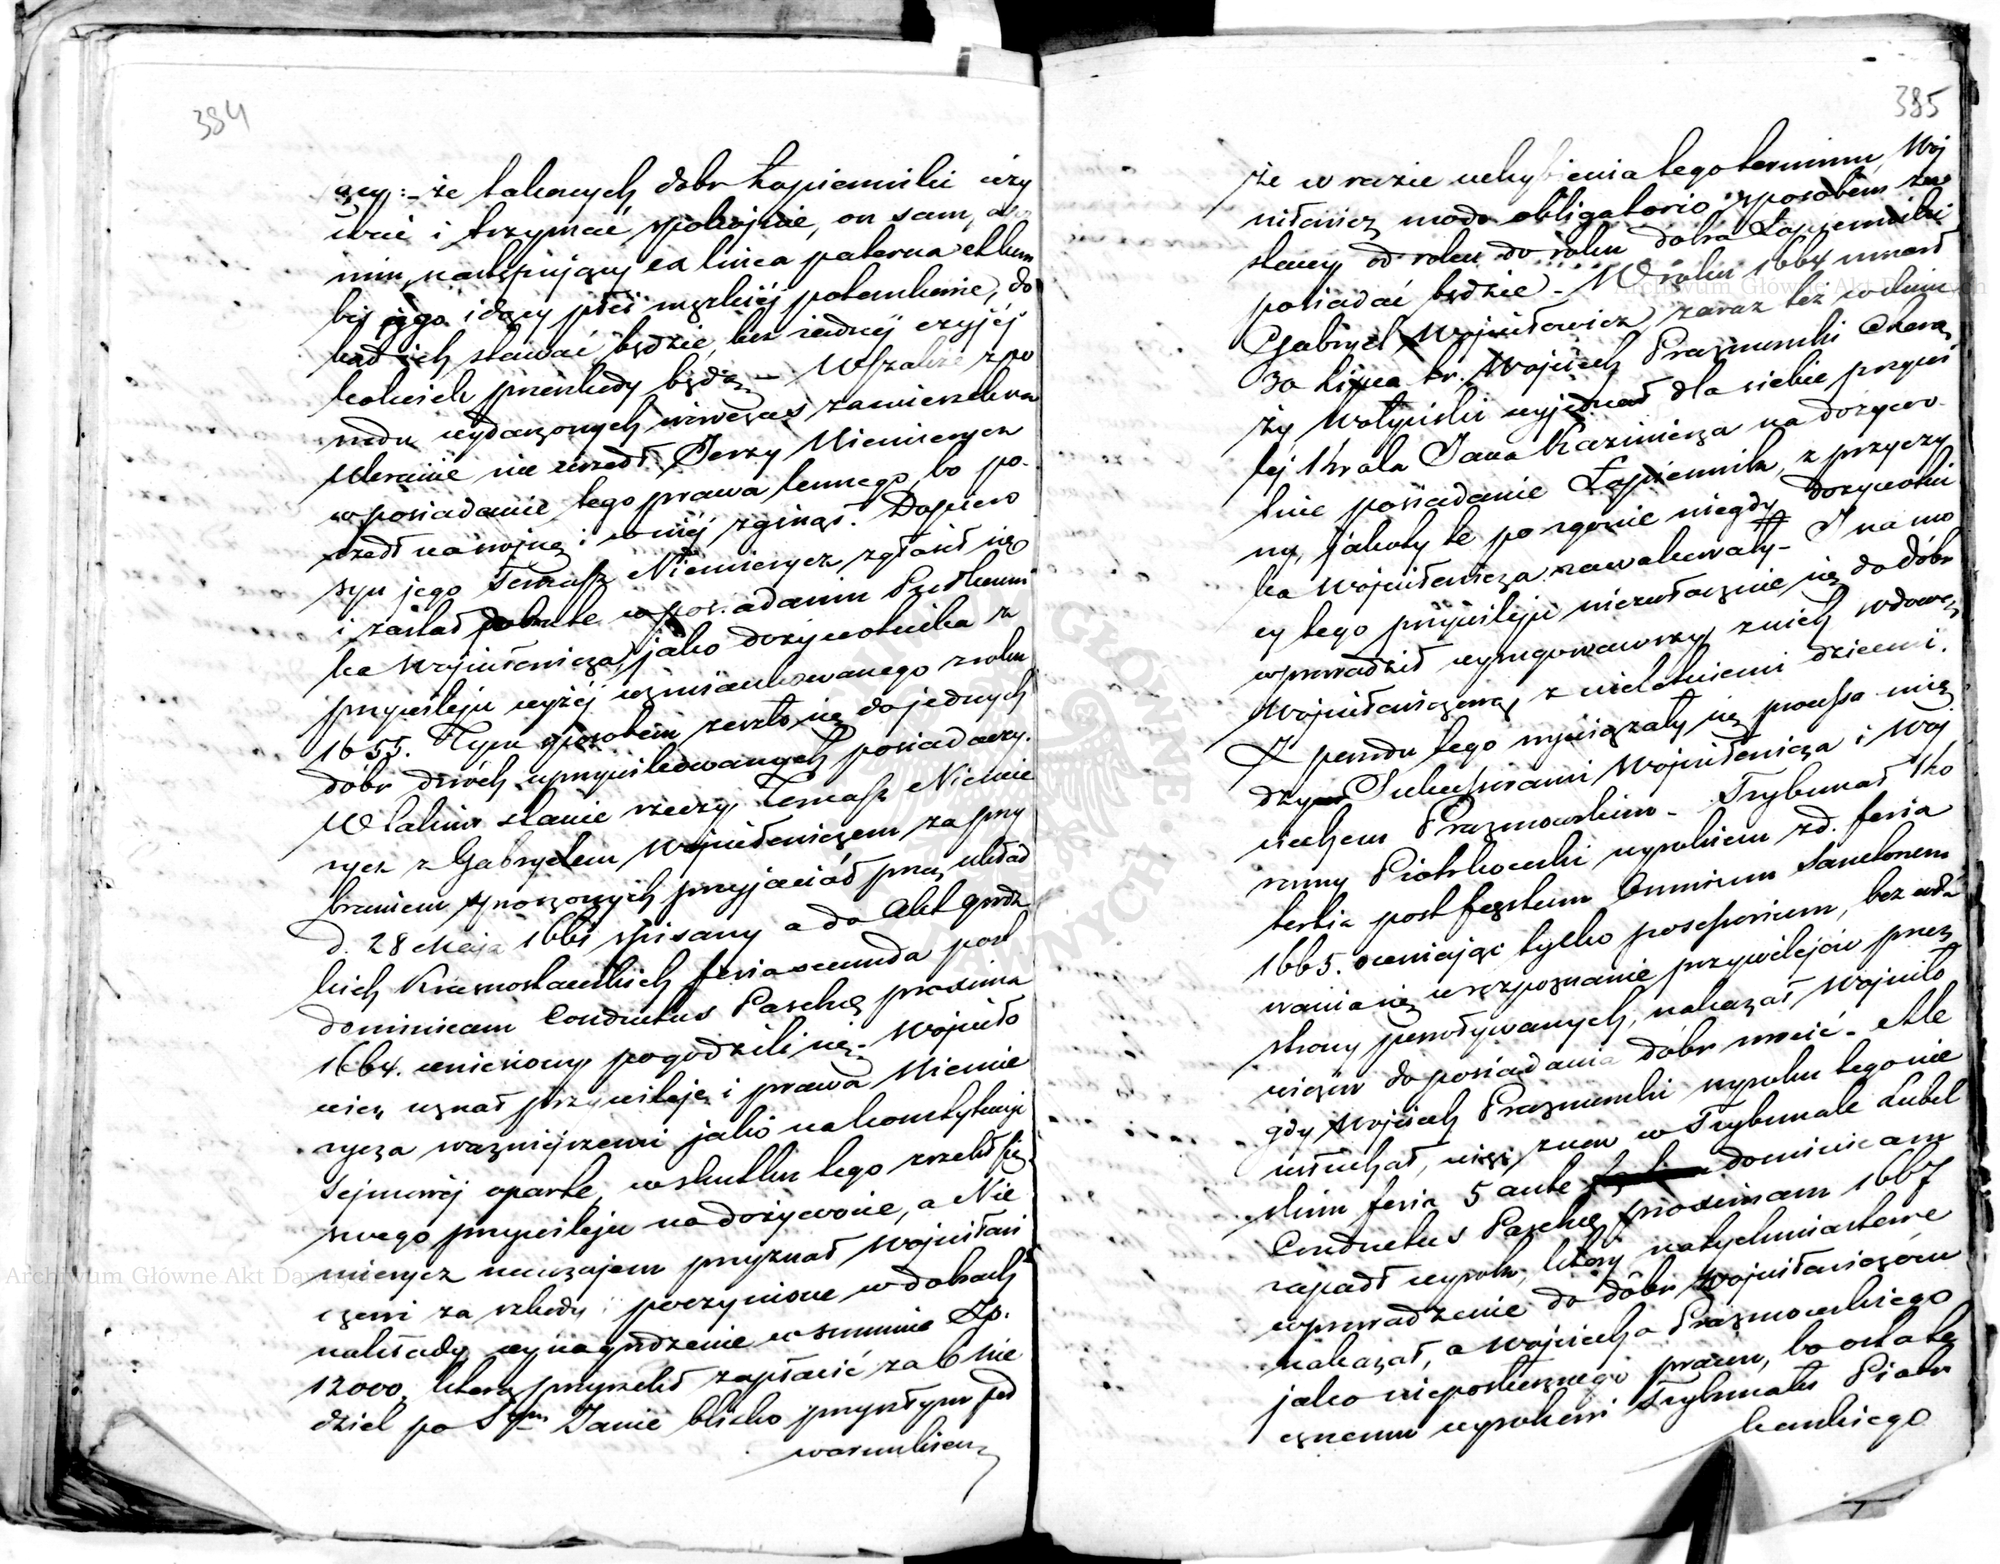 384
że takowych dobr Łopiennik uży
wać i trzymać spokojnie, on sam, a po
nim następujący ex linea paterna et lum
bis ejgo idący płci męzkiéj potomkowie, do
kąd ich stawać będzie, bez żadnéj czyjéj
kolwiek przeszkody będą — Wszakże z po
wodu wydarzonych wówczas zamieszek na
Ukrainie nie wszedł Jerzy Niemierycz
w posiadanie tego prawa lennego, bo po-
szedł na wojnę i w niéj zginął. Dopiero
syn jego Tomasz Niemierycz, zgłosił się
i zastał dobra te w posiadaniu Pułkowni
ka Wojniłowicza, jako dożywotnika z
przywileju wyżéj wzmiankowanego z roku
1655. Tym sposobem zeszło się do jednych
dóbr dwóch uprzywilejowanych posiadaczy.
W takim stanie rzeczy Tomasz Niemie
rycz z Gabryelem Wojniłowiczem za
braniem spnoszonych przyjaciół przez układ
d. 28 Maja 1661 spisany a do Akt grodz
kich Krasnostawskich feria secunda post
dominicam Conductus Paschę proxima
1664. wniesiony pogodzili się. Wojniło
wicz uznał przywileje i prawa Niemie
rycza ważniejszemi jako na konstytucyi
Sejmowéj oparte, w skutku tego zrzekł się
swego przywileju na dożywocie, a Nie
mierycz nawzajem przyznał Wojniłowi
czowi za szkody i poczynione w dobrach
nakłady wynagrodzenie w summie Zp.
12000, którą przyrzekł zapłacić za 6 Nie
dziel po Sym Janie blisko przyszłym pod
warunkiem
385
że w razie uchybienia tego terminu, Woj
niłowicz modo obligatorio sposobem za
stawy od roku do roku dobra Łopienniki
posiadać będzie — W roku 1664 umarł
Gabryel Wojniłowicz, zaraz też w dniu
30 Lipca t.r. Wojciech Prażmowski Chorą
ży Wołyński wyjednał dla siebie przywi
lej Króla Jana Kazimierza na dożywo-
tnie posiadanie Łopiennika, z przyczy
ny, jakoby te po zgonie niegdy dożywotni
ka Wojniłowicza zawakowały — I na mo
cy tego przywileju niezwłocznie się do dóbr
wprowadził wyrugowawszy z nich wdowę
Wojniłowiczową z nieletniemi dziećmi.
Z powodu tego wywiązały się processa mię
dzy Sukcessorami Wojniłowicza i Woj
ciechem Prażmowskim — Trybunał Ko
ronny Piotrkowski wyrokiem z d. feria
tertia post festum Omnium Sanctorum
1665. oceniając tylko possessorium, bez wda
wania się w rozpoznanie przywilejów przez
strony powoływanych, nakazał Wojniło
wiczów do posiadania dóbr wrócić — Ale
gdy Wojciech Prażmowski wyroku tego nie
usłuchał, więc znow w Trybunale Lubel
skim feria 5 ante dominicam
Conductus Paschę proximam 1667
zapadł wyrok, który natychmiastowe
wprowadzenie do dóbr Wojniłowiczów
nakazał, a Wojciecha Prażmowskiego
jako nieposłusznego prawu, bo ostate
cznemu wyrokowi Trybunału Piotr
kowskiego